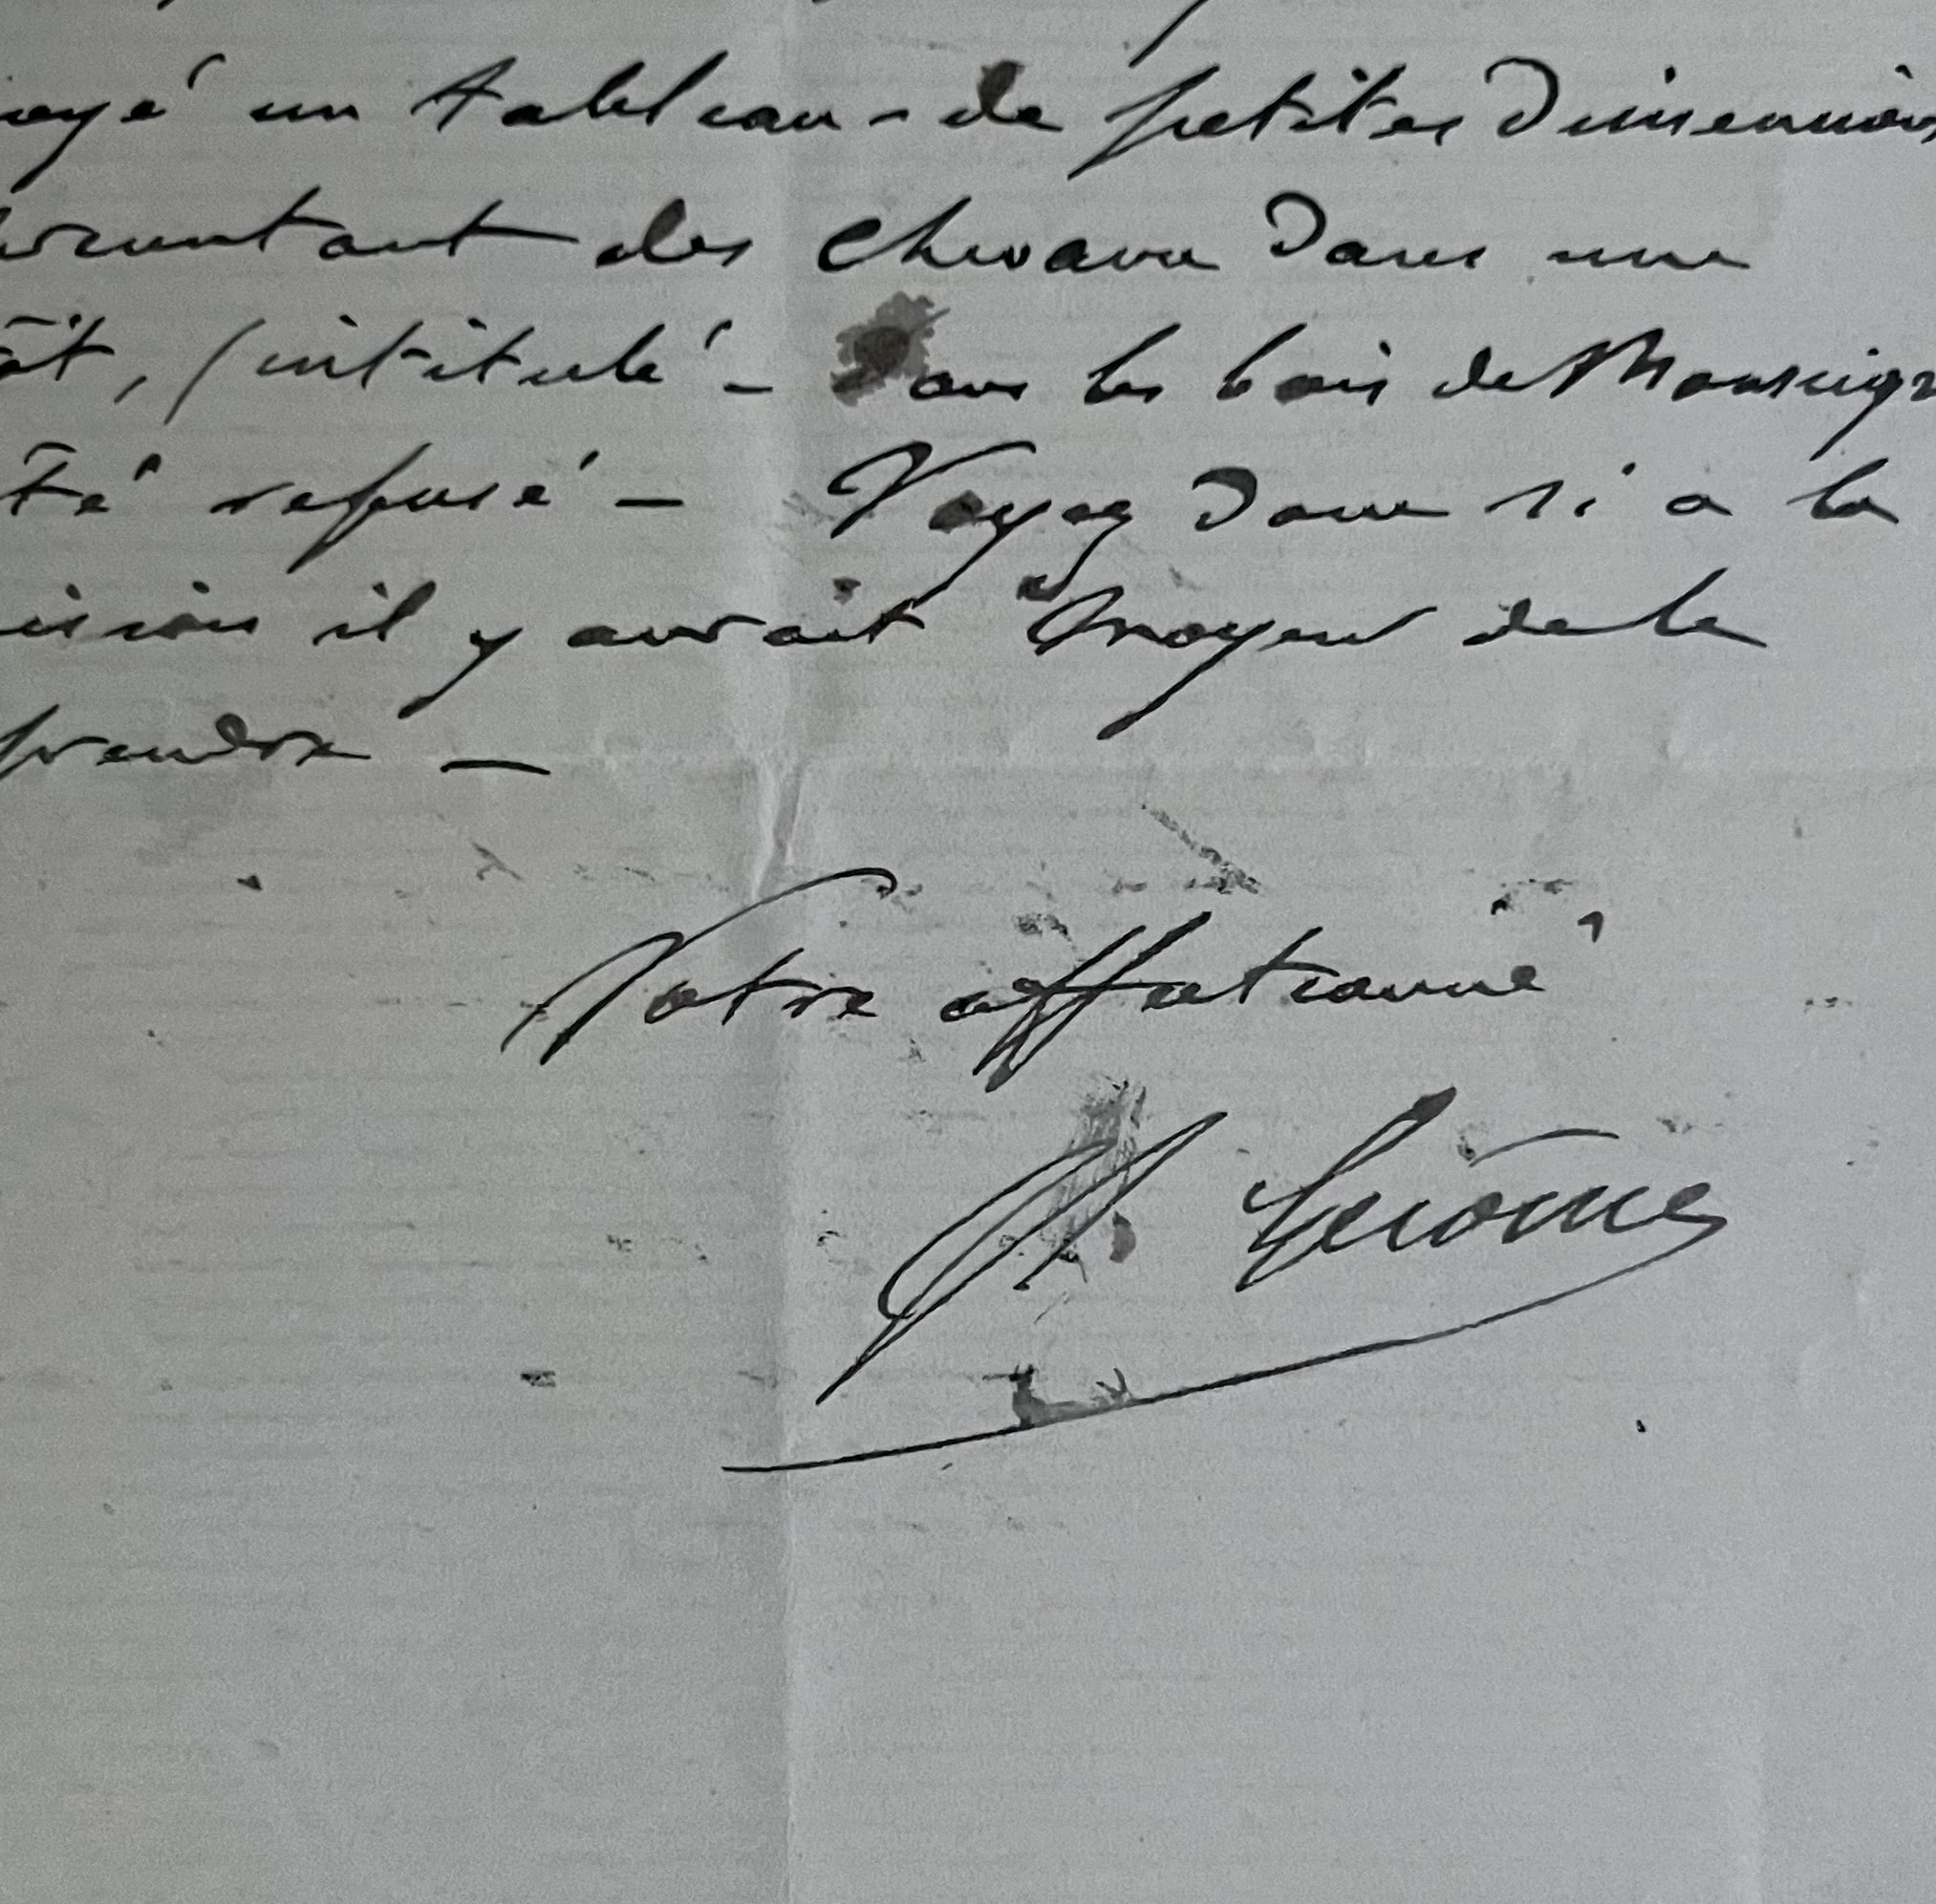 oyé un tableau - de petites Dimensions
présentant des chevaux Dans une
êt, (intitulé - Dans les bois de Monseign
té refusé - Voyez Donc si a la
ision il y aurait moyen de le
prendre -
Votre affectionné
Gérôme